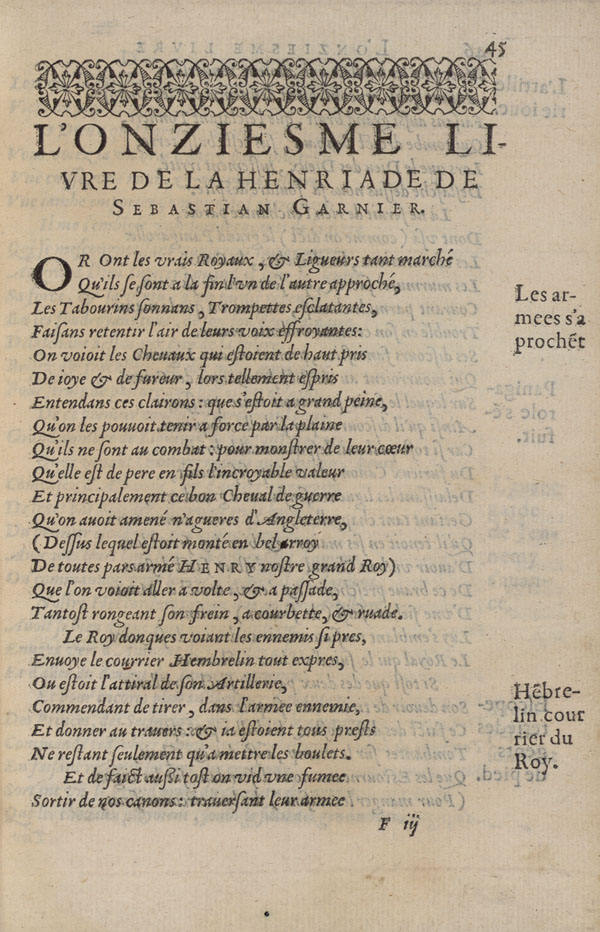 45
L'ONZIESME LI-
VRE DE LA HENRIADE DE
SEBASTIAN GARNIER.
OR Ont les vrais Royaux, & Ligueurs tant marché
Qu'ils se sont a la fin l'vn de l'autre approché,
Les Tabourins sonnans, Trompettes esclatantes,
Faisans retentir l'air de leurs voix effroyantes:
On voioit les Cheuaux qui estoient de haut pris
De ioye & de fureur, lors tellement espris
Entendans ces clairons: que s'estoit a grand peine,
Qu'on les pouuoit tenir a force par la plaine
Qu'ils ne sont au combat: pour monstrer de leur cœur
Qu'elle est de pere en fils l'incroyable valeur
Et principalement ce bon Cheual de guerre
Qu'on auoit amené n'agueres d'Angleterre,
(Dessus lequel estoit monté en bel arroy
De toutes pars armé HENRY nostre grand Roy)
Que l'on voioit aller a volte, & a passade,
Tantost rongeant son frein, a courbette, & ruade.
Le Roy donques voiant les ennemis si pres,
Enuoye le courrier Hembrelin tout expres,
Ou estoit l'attiral de son Artillerie,
Commendant de tirer, dans l'armee ennemie,
Et donner au trauers: & ia estoient tous prests
Ne restant seulement qu'a mettre les boulets.
Et de faict aussi tost on vid vne fumee
Sortir de nos canons: trauersant leur armee
F iij
Les ar-
mees s'a
prochẽt
Hẽbre-
lin cour
rier du
Roy.